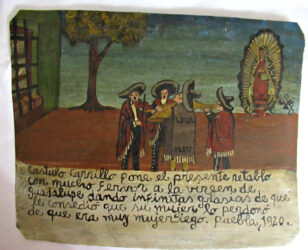 Castulo Carrillo pone el presente retablo
con mucho fervor a la virgen de
guadalupe, dando infinitas grasias de que
le consedio que su mujer lo perdono
de que era muy mujeriego. Puebla, 1920.